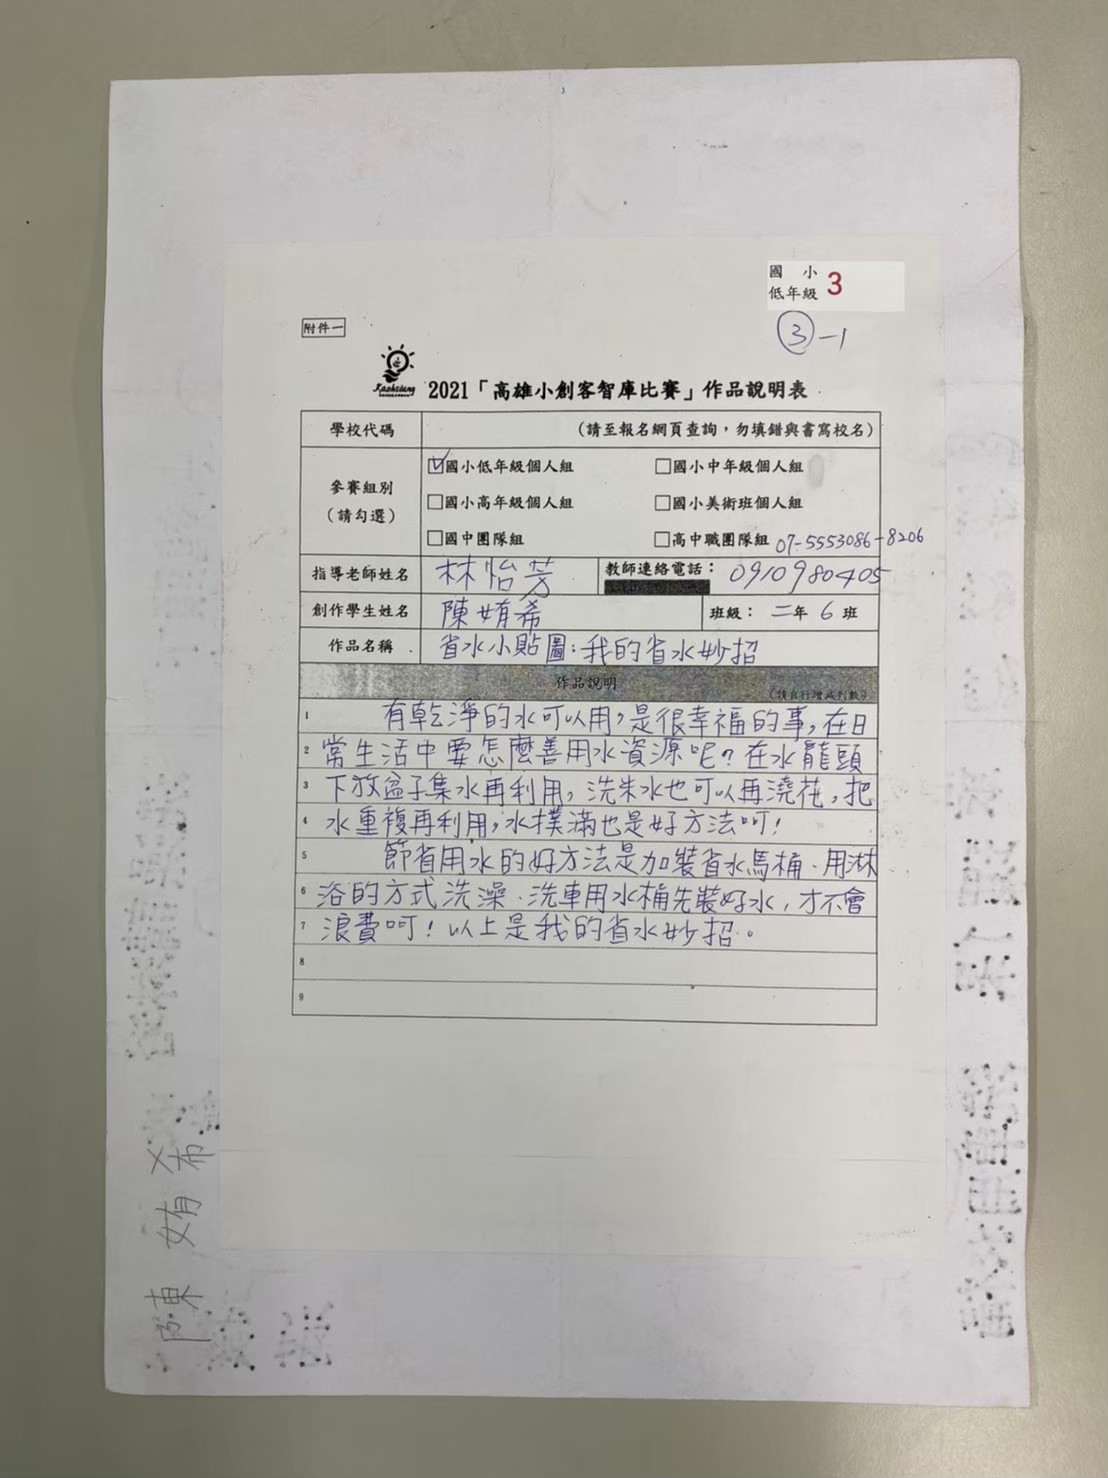 國 小
低年級 3
③-1
附件一
Kaohsiung
2021「高雄小創客智庫比賽」作品說明表
學校代碼 (請至報名網頁查詢,勿填錯與書寫校名)
參賽組別
(請勾選)
☑國小低年級個人組 □國小中年級個人組
□國小高年級個人組 □國小美術班個人組
□國中團隊組 □高中職團隊組 07-5553086-8206
指導老師姓名 林怡芳 教師連絡電話: 0910980405
創作學生姓名 陳姷希 班級: 二年 6 班
作品名稱 省水小貼圖:我的省水妙招
作品說明 (請自行增減列數)
1 有乾淨的水可以用,是很幸福的事,在日
2 常生活中要怎麼善用水資源呢?在水龍頭
3 下放盆子集水再利用,洗米水也可以再澆花,把
4 水重複再利用,水撲滿也是好方法呵!
5 節省用水的好方法是加裝省水馬桶、用淋
6 浴的方式洗澡、洗車用水桶先裝好水,才不會
7 浪費呵!以上是我的省水妙招。
8
9
陳 姷 希